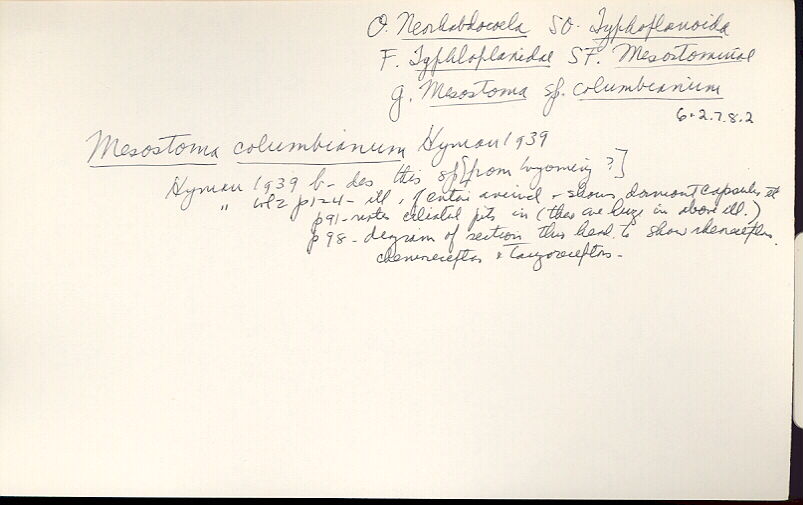 O. Neorhabdocoela SO. Typhoplanoida
F. Typhloplanidae SF. Mesostominae
g. Mesostoma sp. columbianum
6.2.7.8.2
Mesostoma columbianum Hyman 1939
Hyman 1939 b - des this sp [from Wyoming ?]
" vol 2 p124 - ill. of entire animal - shows dormant capsules
p91 - notes ciliated pits in (they are huge in above ill.)
p98 - diagram of section thru head to show rheoreceptors
chemoreceptors & tangoreceptors -